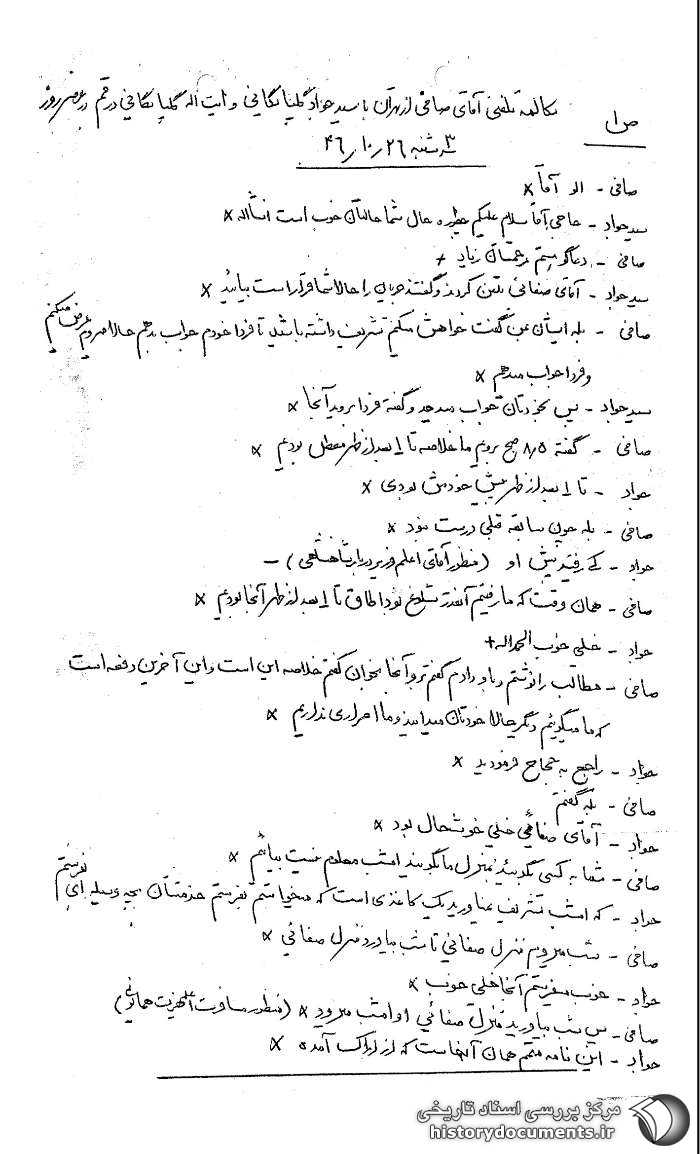 ص ۱
مکالمه تلفنی آقای صافی از تهران با سید جواد گلپایگانی و ایت اله گلپایگانی در قم در عصر روز
۳ شنبه ۲۶ / ۱۰ / ۴۶
صافی - الو آقا ×
سید جواد - حاجی آقا سلام علیکم چطوره حال شما حالتان خوب است انشاله ×
صافی - دعاگو هستم مرحمتتان زیاد ×
سید جواد - آقای صفائی تلفن کردند و گفتند جریان را حالا شما قرار است بیائید ×
صافی - بله ایشان بمن گفت خواهش میکنم تشریف داشته باشید تا فردا خودم جواب بدهم حالا میروم عرض میکنم
و فردا جواب میدهم ×
سید جواد - پس بخودتان جواب میدهد و گفته فردا بروید آنجا ×
صافی - گفته ۸/۵ صبح برویم ما خلاصه تا ۱ بعد از ظهر معطل بودیم ×
جواد - تا ۱ بعد از ظهر پیش خودش بودی ×
صافی - بله چون سابقه قبلی درست نبود ×
جواد - کی رفتید پیش او (منظور آقای اعلم وزیر دربار شاهنشاهی) -
صافی - همان وقت که ما رفتیم آنقدر شلوغ بود اطاق تا ۱ بعد از ظهر آنجا بودیم ×
جواد - خیلی خوب الحمداله +
صافی - مطالب را نوشتم و باو دادم گفتم تو آنجا بخوان گفتم خلاصه این است و این آخرین دفعه است
که ما میگوئیم دیگر حالا خودتان میدانید و ما اصراری نداریم ×
جواد - راجع به حجاج فرمودید ×
صافی - بله گفتم
جواد - آقای صفائی خیلی خوشحال بود ×
صافی - شما به کسی نگوئید بمنزل ما نگویید امشب معلوم نیست بیائیم ×
جواد - که امشب تشریف نمیاورید یک کاغذی است که میخواستم بفرستم خدمتتان بچه وسیله ای بفرستم
صافی - شب میرویم منزل صفائی تا شب بیاورد منزل صفائی ×
جواد - خوب میفرستم آنجا خیلی خوب ×
صافی - پس شب بیاورید منزل صفائی او امشب میرود × (منظور مسافرت اعلیحضرت همایونی)
جواد - این نامه متمم همان آنهاست که از اراک آمده ×
مرکز بررسی اسناد تاریخی
historydocuments.ir